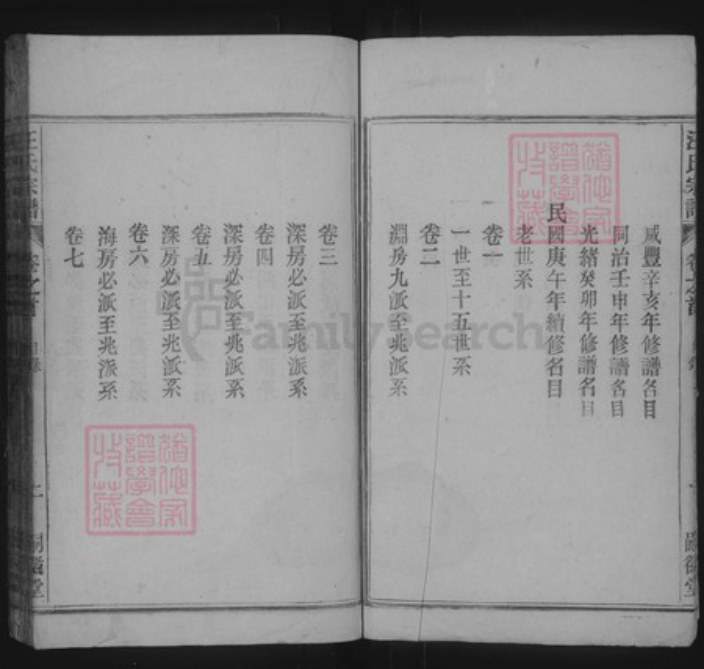 汪氏宗譜
咸豐辛亥年修譜各目
同治壬申年修譜各目
光緒癸卯年修譜名目
民國庚午年續修名目
老世系
卷一
一世至十五世系
卷二
淵房九派至兆派系
卷三
深房必派至兆派系
卷四
深房必派至兆派系
卷五
深房必派至兆派系
卷六
海房必派至兆派系
卷七
汪氏宗譜
卷之首
目錄
FamilySearch